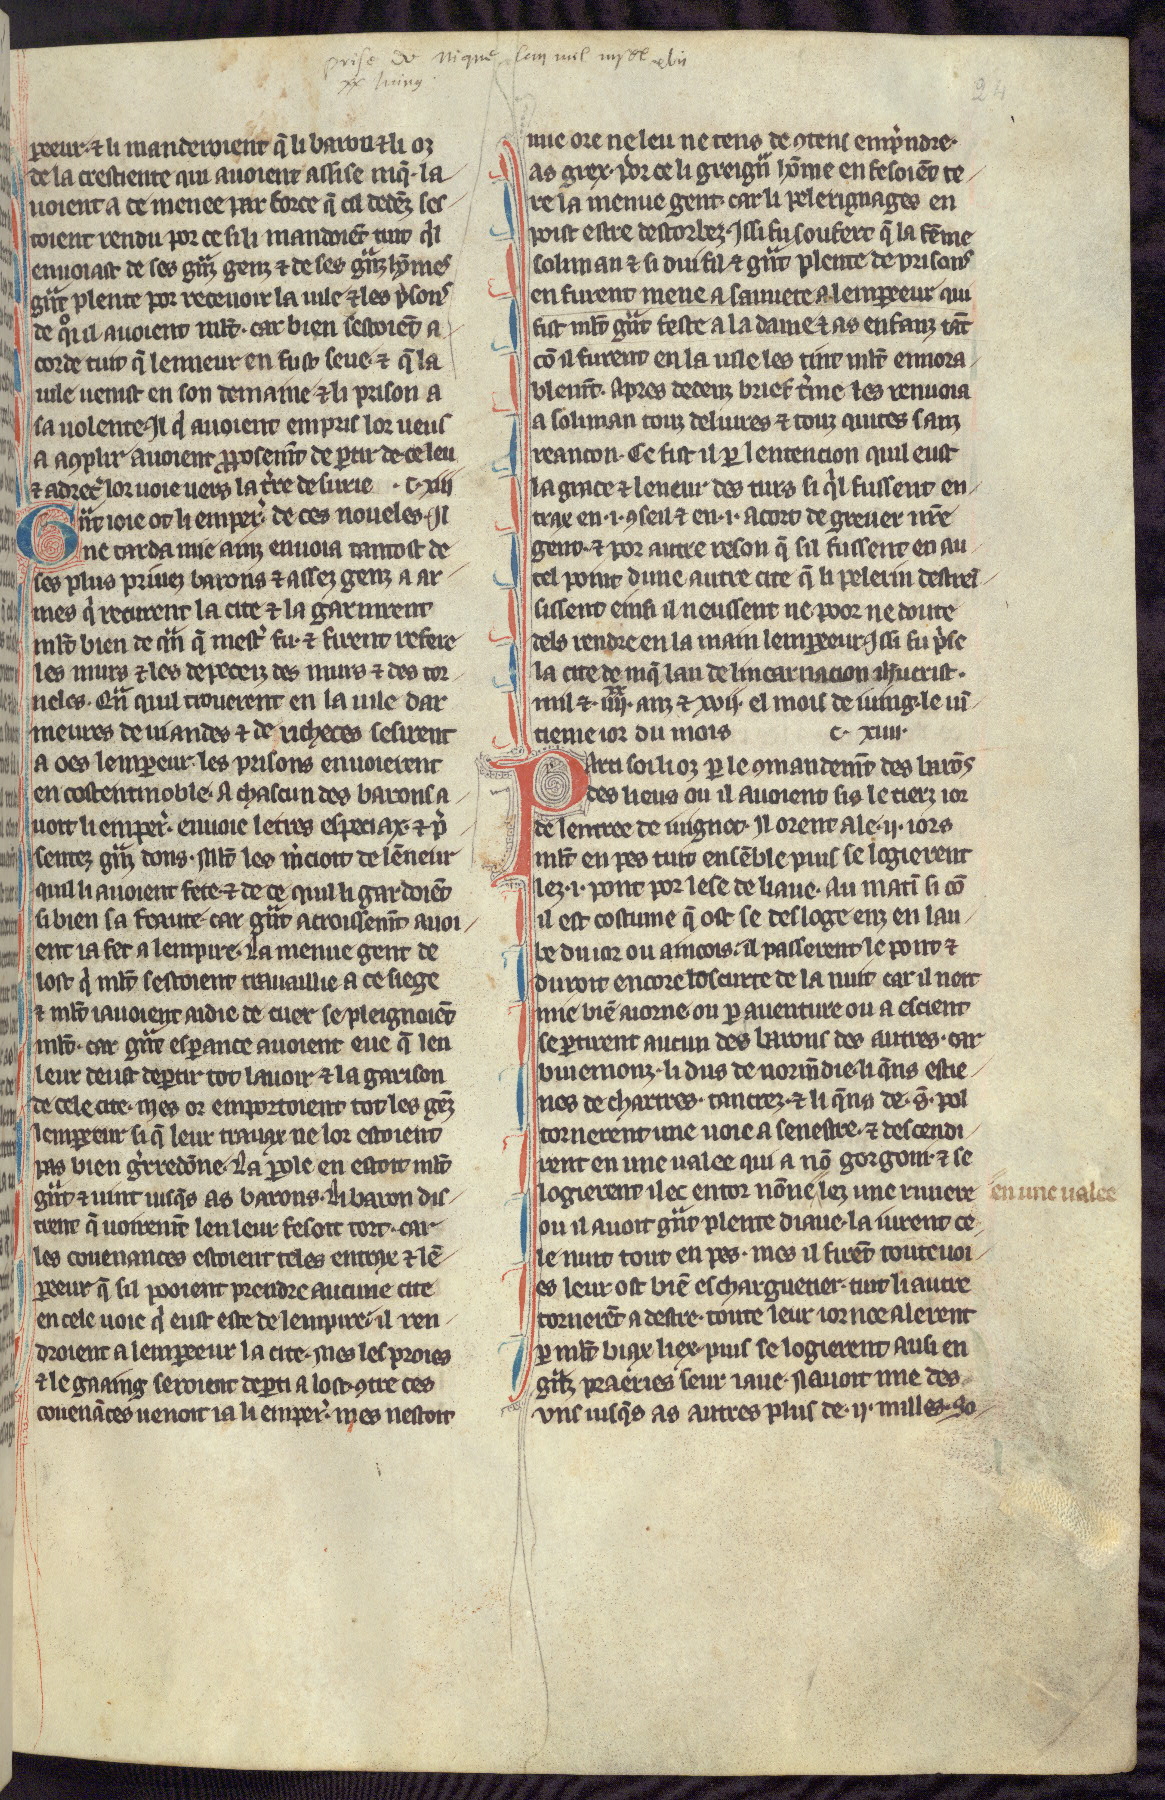 prise de nique
24
pereur· ⁊ li manderoient q̄ li baron ⁊ li oz
de la crestiente qui auoient assise niq̄· la
uoient a ce menee par force q̄ cil dedēz ses
toient rendu por ce si li mandoiēt tuit q̓l
enuoiast de ses gͣnz genz ⁊ de ses gͣnz hōmes
gͣnt plente por receuoir la uile ⁊ les p̓sons
de q̊i il auoient ml̄t· car bien sestoiēt a
corde tuit q̄ lenneur en fust seue· ⁊ q̄ la
uile uenist en son demaine ⁊ li prison a
sa uolente· Il q̓ auoient empris lor ueus
a aꝯplir auoient ꝓposemēt de ꝑtir de ce leu
⁊ adrec̄ lor uoie uers la t̄re de surie · c· xiii
Gͣnt ioie ot li emper̓· de ces noueles· Il
ne tarda mie ainz enuoia tantost de
ses plus priuez barons ⁊ assez genz a ar
mes q̓ recurent la cite ⁊ la garnirent
ml̄t bien de qͣn q̄ mest̓ fu· ⁊ firent refere
les murs ⁊ les depeceiz des murs ⁊ des tor
neles· Qͣn quil trouerent en la uile dar
meures de uiandes ⁊ de richeces sesirent
a oes lempereur· les prisons enuoierent
en costentinoble· A chascun des barons a
uoit li emper̓· enuoie letres especiax· ⁊ p̓
sentez gͣnz dons· Ml̄t les m̓cioit de lēneur
quil li auoient fete· ⁊ de ce quil li gardoiēt
si bien sa feaute· car gͣnt acroissemēt auoi
ent ia fet a lempire· La menue gent de
lost q̓ ml̄t sestoient trauaillie a ce siege
⁊ ml̄t i auoient aidie de cuer se pleignoiēt
ml̄t· car gͣnt esꝑance auoient eue q̄ len
leur deust deꝑtir tot lauoir ⁊ la garison
de cele cite· mes or emportoient tot les gēz
lempereur si q̄ leur trauax ne lor estoient
pas bien g̓redōne· La ꝑole en estoit ml̄t
gͣnt ⁊ uint iusq̄s as barons· Li baron dis
trent q̄ uoiremēt len leur fesoit tort· car
les couenances estoient teles entrax ⁊ lē
pereur q̄ sil pooient prendre aucune cite
en cele uoie q̓ eust este de lempire· il ren
droient a lempereur la cite· Mes les proies
⁊ le gaaing seroient deꝑti a lost· ꝯtre ces
couenāces uenoit ia li emper̓· mes nestoit
mie ore ne leu ne tens de ꝯtens emp̓ndre·
as grex· Por ce li greigͣn hōme en fesoiēt te
re la menue gent· car li pelerignages en
poist estre destorbez· Issi fu soufert q̄ la fēme
soliman ⁊ si dui fil ⁊ gͣnt plente de prisons
en furent mene a sauuete a lempereur qui
fist ml̄t gͣnt feste a la dame ⁊ as enfanz tāt
cō il furent en la uile les tint ml̄t ennora
blemēt· Apres dedenz brief t̓me les renuoia
a soliman touz deliures ⁊ touz quites sanz
reancon· Ce fist il ꝑ lentencion quil eust
la grace ⁊ leneur des turs si q̓l fussent en
trax en ·i· ꝯseil ⁊ en ·i· acort de greuer nr̄e
gent· ⁊ por autre reson q̄ sil fussent en au
tel point dune autre cite q̄ li pelerin destrei
sissent einsi il neussent ne poor ne doute
dels rendre en la main lempereur· Issi fu p̓se
la cite de niq̄ lan de lincarnacion ih̄ucrist·
mil ⁊ ·iiii·xx· anz ⁊ xvii· el mois de iuing· le ui
tieme ior du mois c· xiiii·
Parti soi li oz ꝑ le ꝯmandemēt des barōs
des lieus ou il auoient sis le tierz ior
de lentree de iugnet· Il orent ale ·ii· iors
ml̄t en pes tuit ensēble puis se logierent
lez ·i· pont por lese de liaue· Au matī si cō
il est costume q̄ ost se desloge enz en lau
be du ior ou aincois· il passerent le pont ⁊
duroit encore loscurte de la nuit car il nert
mie biē aiorne· ou ꝑ auenture ou a escient
se ꝑtirent aucun des barons des autres· car
buiemonz· li dus de normēdie· li q̄ns estie
nes de chartres· tancrez· ⁊ li q̄ns de s̄· pol
tornerent une uoie a senestre· ⁊ descendi
rent en une ualee qui a nō gorgoni· ⁊ se
logierent ilec entor nōne lez une riuiere
ou il auoit gͣnt plente diaue· la iurent ce
le nuit tout en pes· mes il firēt touteuoi
es leur ost biē escharguetier· tuit li autre
tornerēt a destre· toute leur iornee alerent
ꝑ ml̄t biax liex· puis se logierent ausi en
gͣnz praeries seur iaue· Nauoit mie des
vns iusq̄s as autres plus de ·ii· milles· So
en une ualee